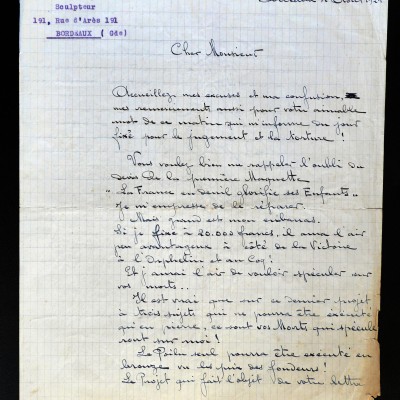 Sculpteur
191, Rue d'Arès 191
BORDEAUX ( Gde)
Bordeaux
Cher Monsieur
Accueillez mes excuses et ma confusion,
mes remerciements aussi pour votre aimable
mot de ce matin qui m'informe du jour
fixé pour le jugement et la torture !
Vous voulez bien me rappeler l'oubli du
devis de la première Maquette
" La France en deuil glorifie ses Enfants "
Je m'empresse de le réparer.
Mais grand est mon embarras.
Si je fixe à 20.000 francs, il aura l'air
peu avantageux à côté de la Victoire
à l'Orphelin et au Coq !
Et j'aurai l'air de vouloir spéculer sur
vos morts...
Il est vrai que sur ce dernier projet
à trois sujets qui ne pourra être exécuté
qu'en pierre, ce sont vos Morts qui spécule
ront sur moi !
Le Poilu seul pourra être exécuté en
bronze vu les prix des fondeurs !
Le Projet qui fait l'objet de votre lettre